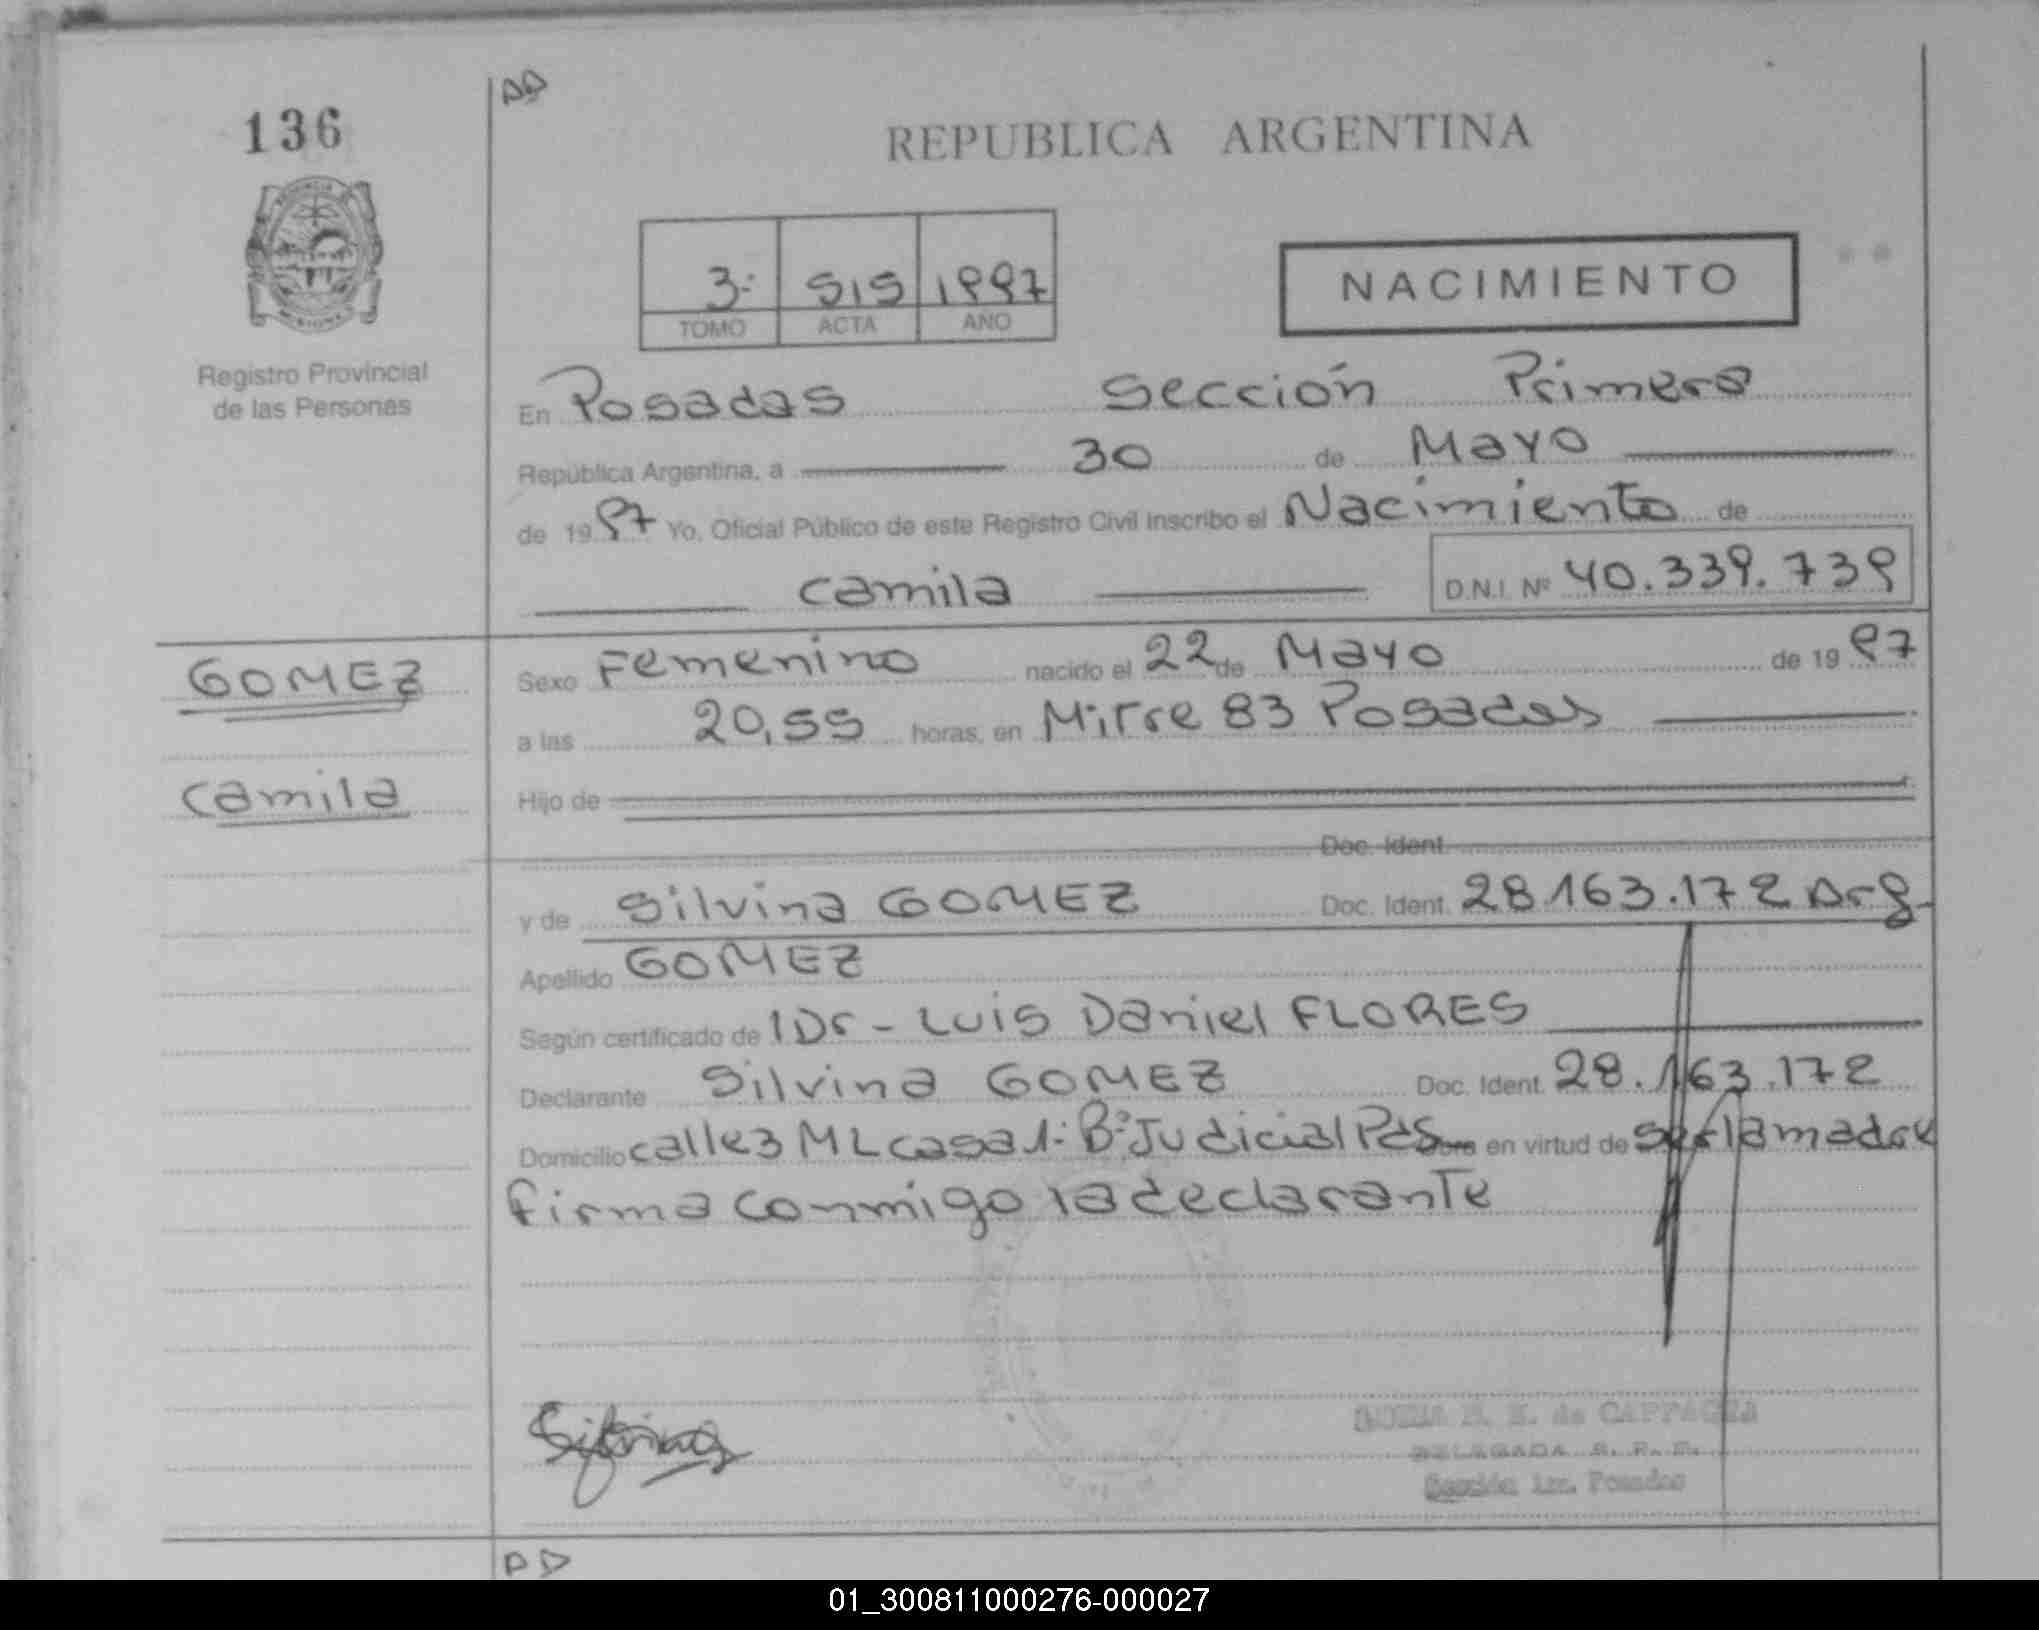 136
Registro Provincial
de las Personas
REPUBLICA ARGENTINA
3: 515 1997
TOMO ACTA AÑO
NACIMIENTO
En Posadas Sección Primera
República Argentina, a 30 de Mayo
de 1997 Yo, Oficial Público de este Registro Civil inscribo el Nacimiento de
Camila D.N.I. Nº 40.339.739
GOMEZ
Camila
Sexo Femenino nacido el 22 de Mayo de 1997
a las 20,55 horas, en Mitre 83 Posadas
Hijo de
Doc. Ident.
y de Silvina GOMEZ Doc. Ident. 28.163.172 Arg.
Apellido GOMEZ
Según certificado de 1 Dr- Luis Daniel FLORES
Declarante Silvina GOMEZ Doc. Ident. 28.163.172
Domicilio calle 3 ML casa 1: Bº Judicial Pdas en virtud de ser la madre
firma conmigo la declarante
Silvina
de CAPPAGLIA
DELEGADA R. P. P.
Sección 1ra. Posadas
01_300811000276-000027